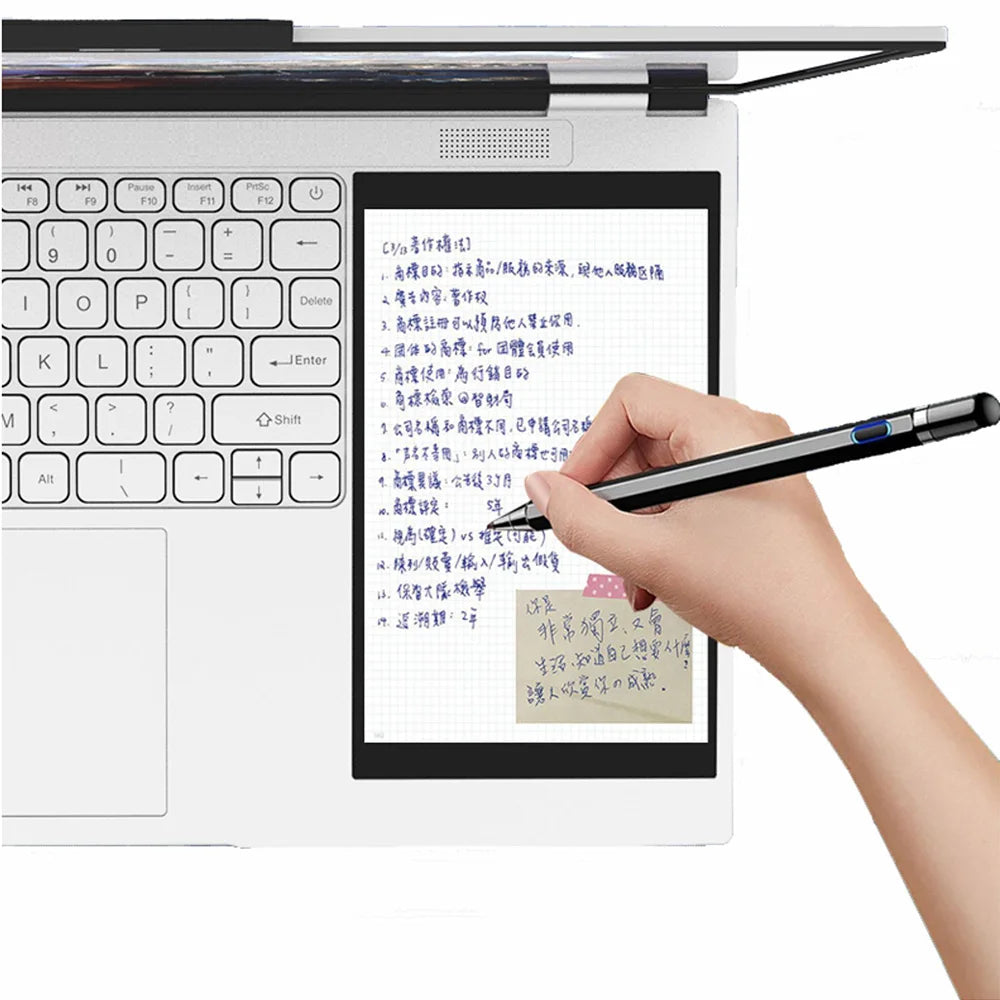 ⏮ F8
⏭ F9
Pause F10
Insert F11
PrtSc F12
( 9
) 0
— -
+ =
←
I
O
P
{ [
} ]
Delete
K
L
: ;
" '
Enter
M
< ,
> .
? /
Shift
Alt
| \
←
↑
↓
→
[3/13 著作權法]
1. 商標目的：指示商品/服務的來源，與他人服務區隔
2. 廣告內容：著作權
3. 商標註冊可以預防他人禁止使用.
4. 団体的商標：for 団體会員使用
5. 商標使用：為行銷目的
6. 商標檢索 @智財局
7. 公司名稱和商標不同，已申請公司名稱
8. 「 」：別人的商標也可用
9. 商標異議：公告後3月
10. 商標評定： 5年
11. 視為(確定) vs 推定(可能)
12. 陳列/販賣/輸入/輸出假貨
13. 保智大隊檢舉
14. 追溯期：2年
你是
非常獨立、又會
生活、知道自己想要什麼
讓人欣賞你の成熟.